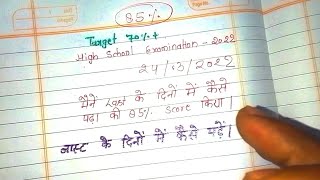 85%
Target 70%+
High School Examination - 2022
24/3/2022
मैंने Last के दिनों में कैसे
पढ़ा की 85% Score किया।
लास्ट के दिनों में कैसे पढ़ें।